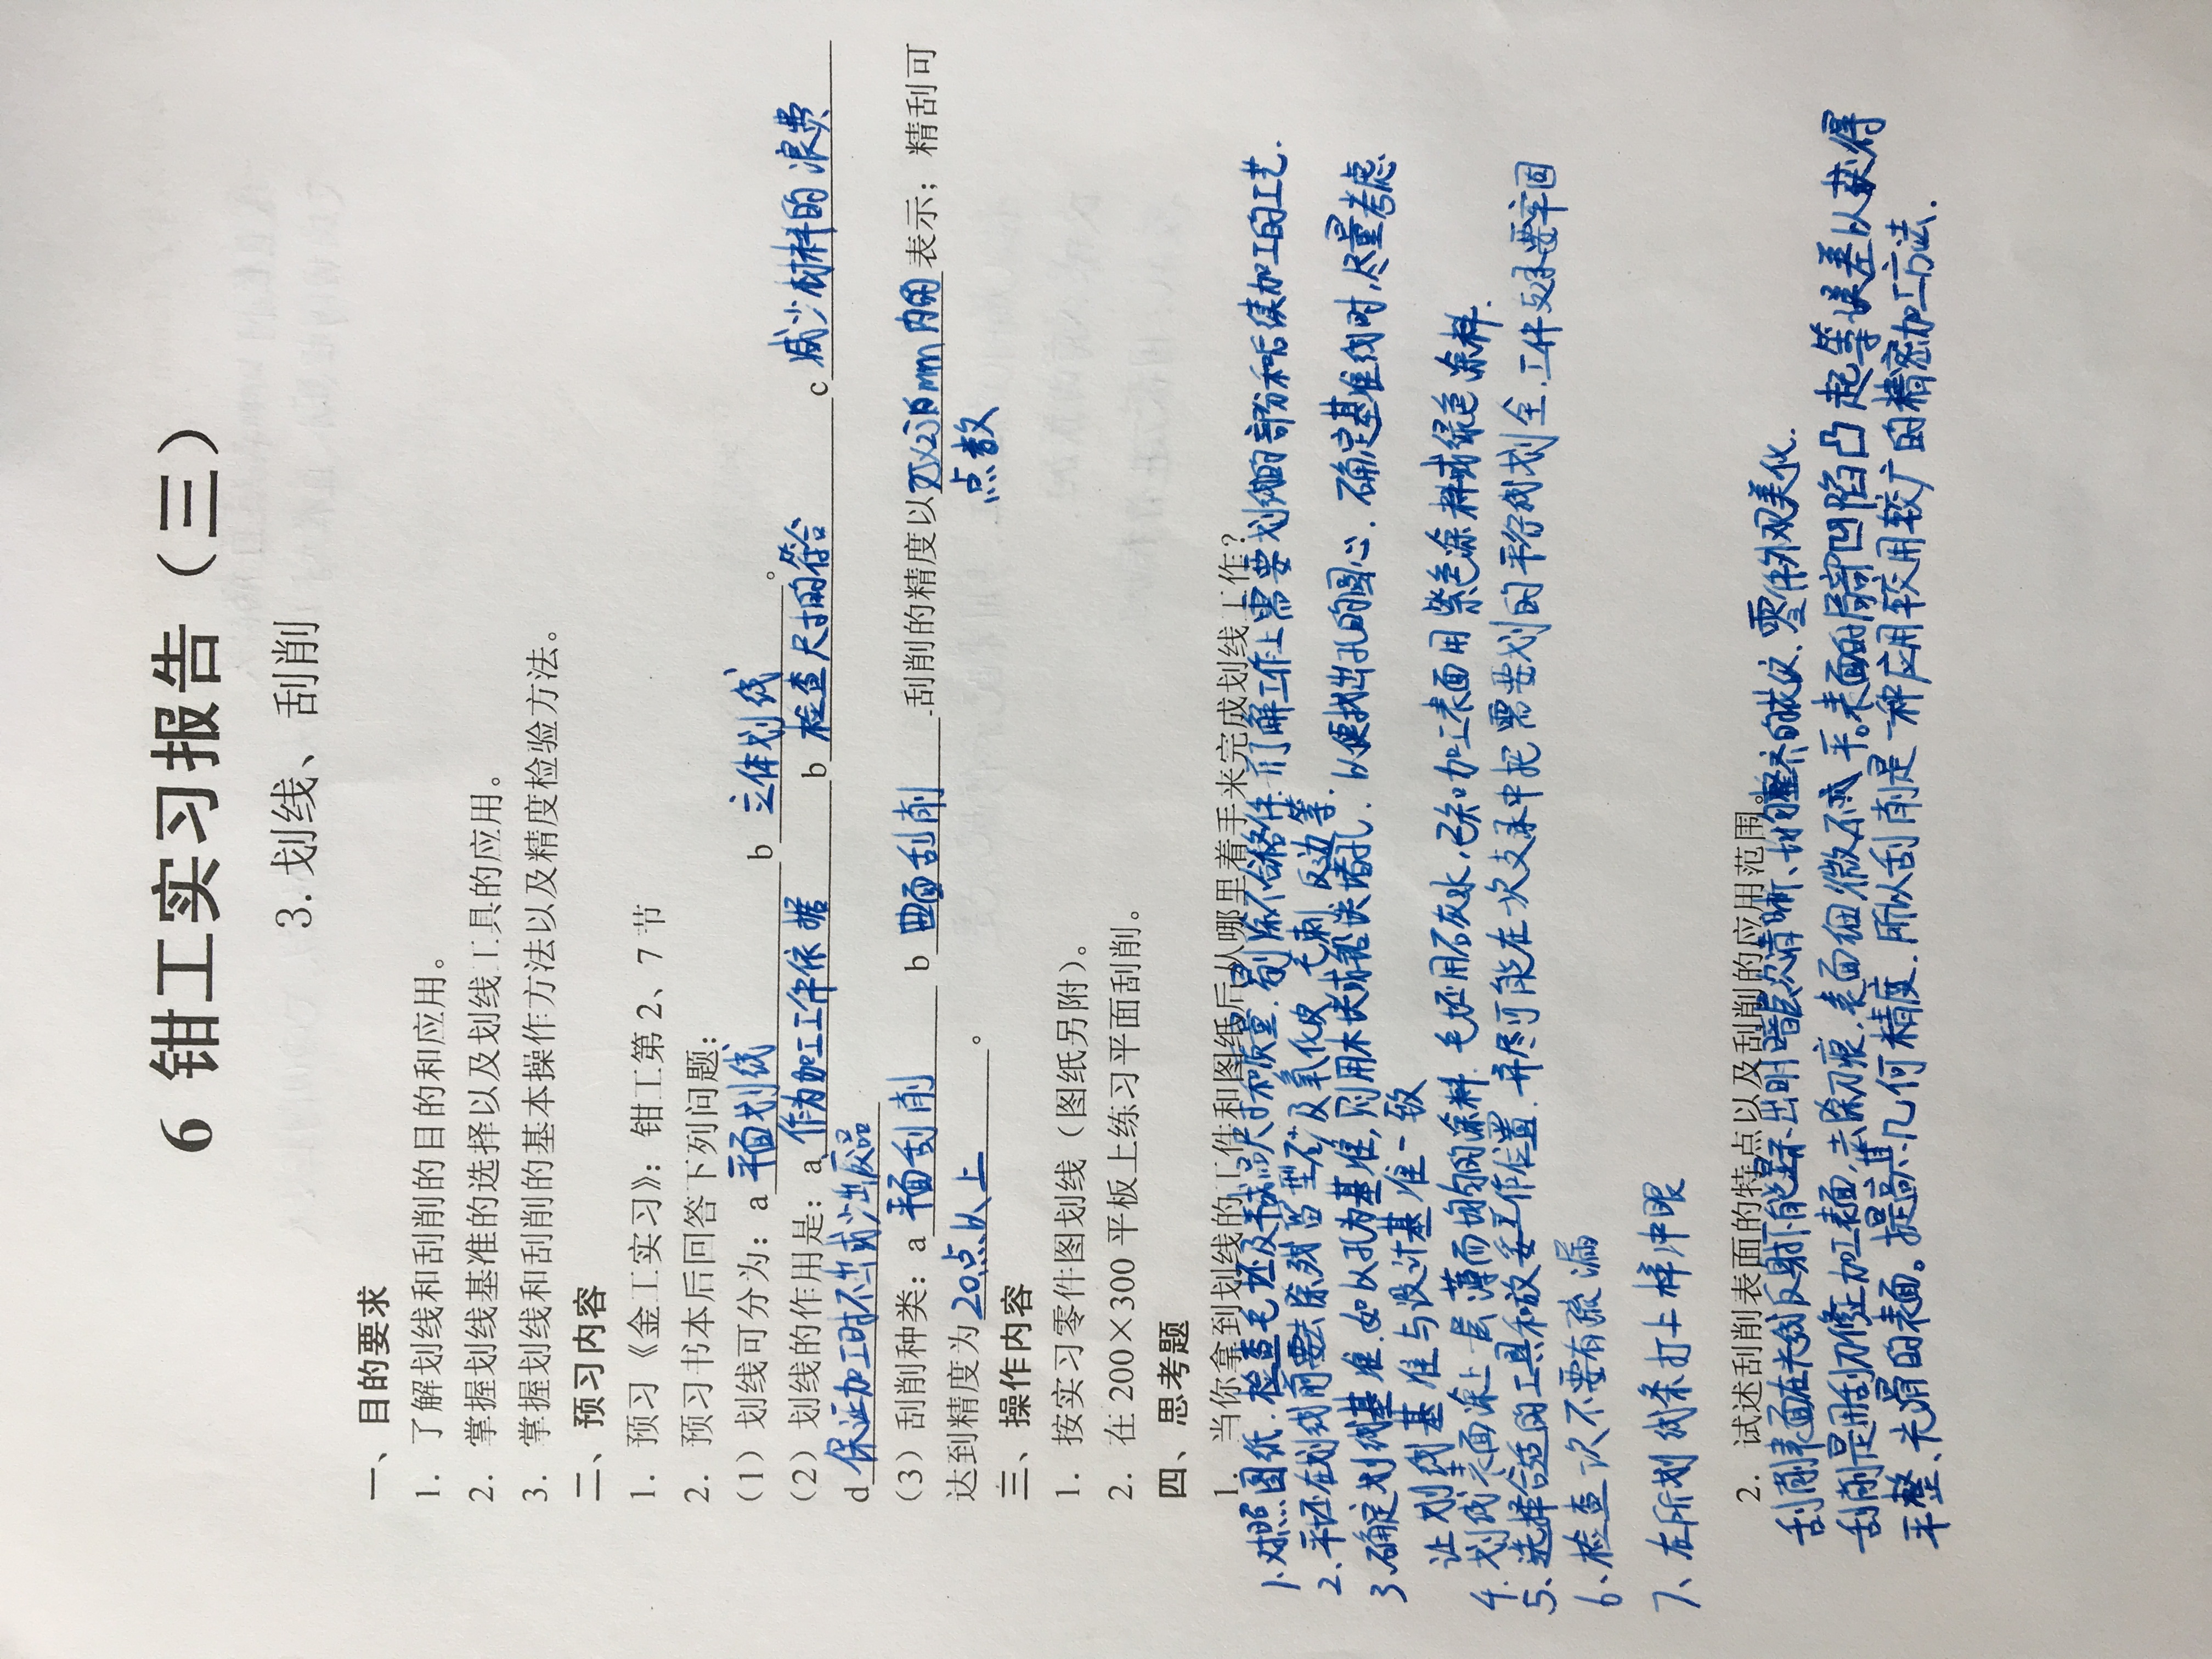 6 钳工实习报告（三）
3. 划线、刮削
一、目的要求
1. 了解划线和刮削的目的和应用。
2. 掌握划线基准的选择以及划线工具的应用。
3. 掌握划线和刮削的基本操作方法以及精度检验方法。
二、预习内容
1. 预习《金工实习》：钳工第2、7节
2. 预习书本后回答下列问题：
（1）划线可分为：a 平面划线 b 立体划线 。
（2）划线的作用是：a 作为加工工件依据 b 检查尺寸的符合 c 减少材料的浪费
d 保证加工时不出或少出废品
（3）刮削种类：a 平面刮削 b 曲面刮削 .刮削的精度以 25×25mm内的 表示；精刮可
点数
达到精度为 20点以上 。
三、操作内容
1. 按实习零件图划线（图纸另附）。
2. 在200×300平板上练习平面刮削。
四、思考题
1. 当你拿到划线的工件和图纸后从哪里着手来完成划线工作？
1、对照图纸.检查毛坯及半成品尺寸和质量.剔除不合格件.了解工件上需要划线的部分和后续加工的工艺.
2、毛坯在划线前要去除残留型砂及氧化皮、毛刺、飞边等.
3、确定划线基准.如以孔为基准,则用木块或铅块堵孔.以便找出孔的圆心.确定基准线时,尽量考虑
让划线基准与设计基准一致
4.划线表面涂上一层薄而均匀的涂料.毛坯用石灰水,已加工表面用紫色涂料或绿色涂料.
5、选择合适的工具和放妥工作位置.并尽可能在一次支承中把需要划的平行线划全.工件支承要牢固
6、检查一次不要有疏漏
7、在所划线条打上样冲眼
2. 试述刮削表面的特点以及刮削的应用范围。
刮削表面在光线反射下能显示出明暗层次清晰、均匀整齐的花纹.零件外观美化.
刮削是用刮刀修正加工表面,去除刀痕.表面细微不平.表面的局部凹陷凸起等误差以获得
平整、光滑的表面。提高其几何精度.所以刮削是一种应用较用较广的精密加工方法.